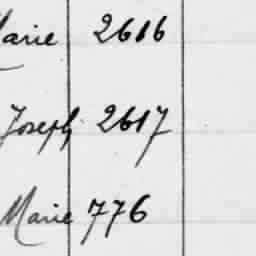 Marie 2616
Joseph 2617
Marie 776